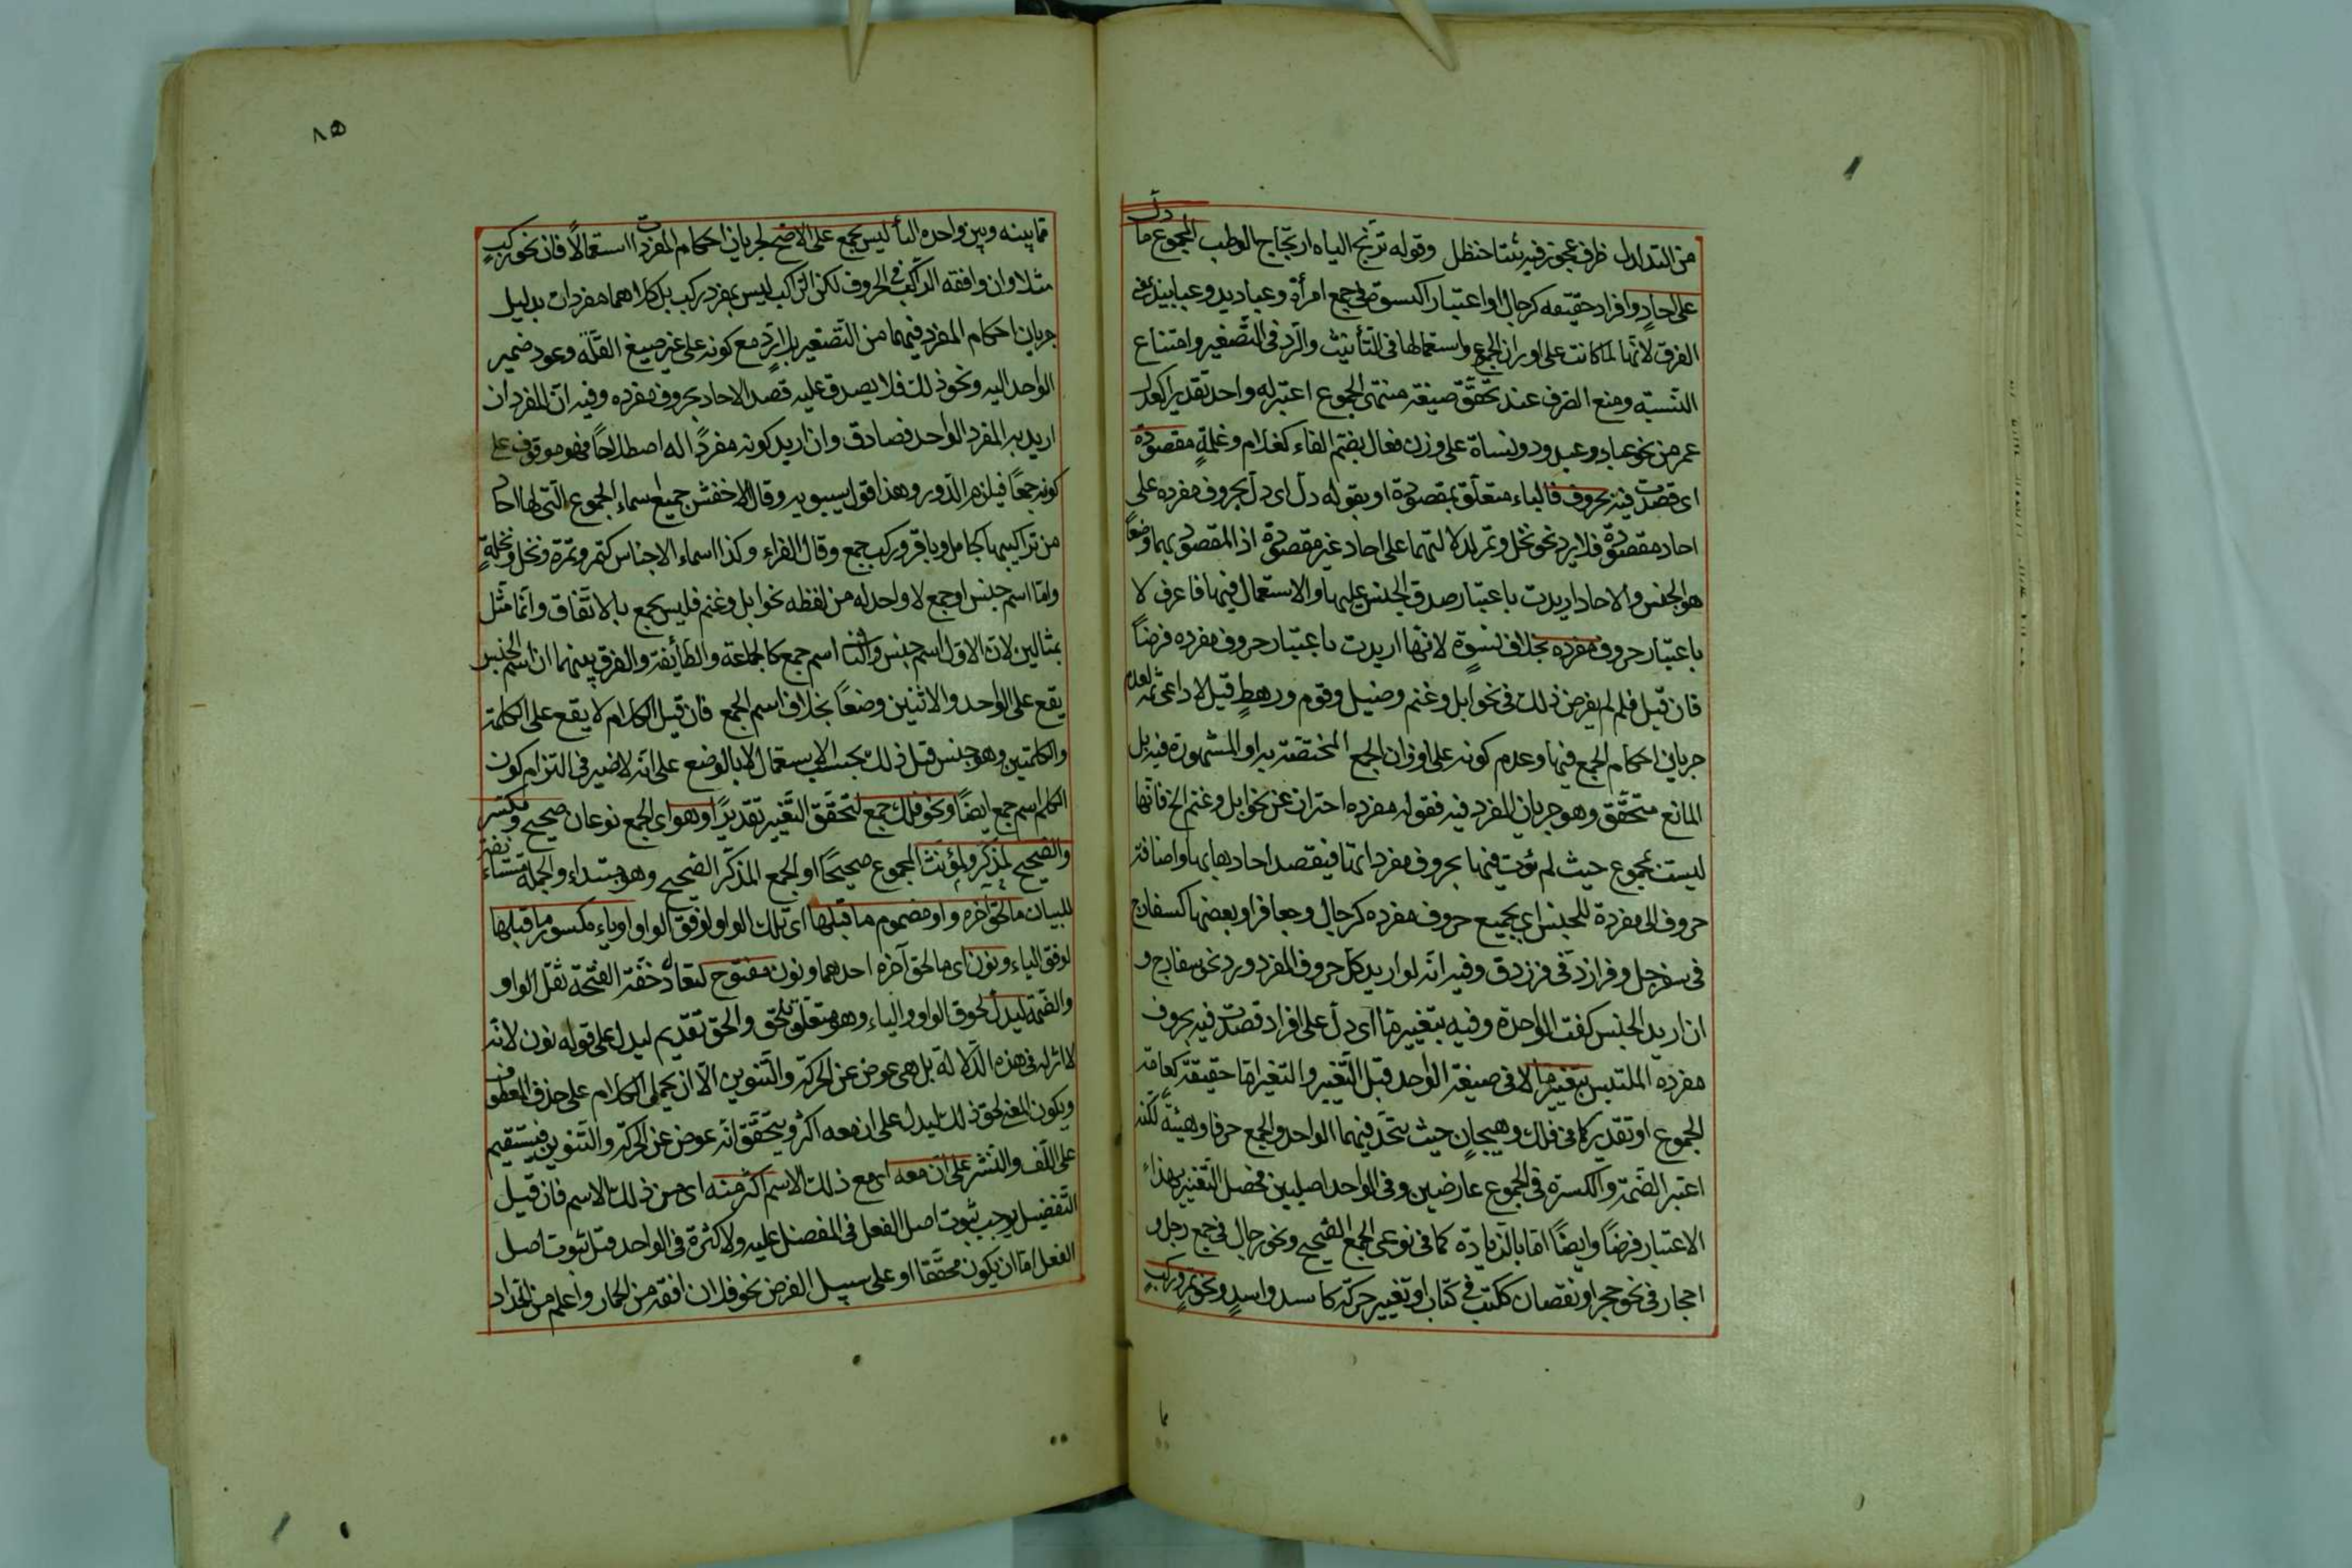 من التدلدل ظرف عجوز فيه ثنتا حنظل وقوله ترتج الياه ارتجاج الوطب المجموع ما دل
على احاد وافراد حقيقه كرجال او اعتبارا كنسوة في جمع امرأة وعباديد وعبابيد في
الفرق لانها لما كانت على اوزان الجمع واستعمالها في التأنيث والرد في التصغير وامتناع
النسبة ومنع الصرف عند تحقق صيغة منتهى الجموع اعتبر له واحد تقديرا كعدل
عمر من نحو عباد وعبدود ونساة على وزن فعال بضم الفاء كغلام وغلمة مقصودة
اى قصدت فيه بحروف فالباء متعلق بمقصودة او بقوله دل اى دل بحروف مفرده على
احاد مقصودة فلا يرد نحو نخل وتمر لدلالتهما على احاد غير مقصودة اذ المقصود بهما وضعا
هو الجنس والاحاد اريدت باعتبار صدق الجنس عليها والاستعمال فيها فاعرف لا
باعتبار حروف مفرده بخلاف نسوة لانها اريدت باعتبار حروف مفرده فرضاً
فان قيل فلم لم يفرض ذلك في نحو ابل وغنم وخيل وقوم ورهط قيل لا داعى ثمه لعدم
جريان احكام الجمع فيها وعدم كونه على اوزان الجمع المختصة به او المشهورة فيه بل
المانع متحقق وهو جريان المفرد فيه فقوله مفرده احتراز عن نحو ابل وغنم الخ فانها
ليست بمجموع حيث لم تؤت فيها بحروف مفرد اتها فيقصد احادها بها واضافة
حروف الى مفردة للجنس اى بجميع حروف مفرده كرجال وجعافر او بعضها كسفارج
في سفرجل وفرازد في فرزدق وفيه انه لو اريد كل حروف المفرد ورد نحو سفارج و
ان اريد الجنس كفت الواحدة وفيه بتغيير ما اى دل على افراد قصدت فيه بحروف
مفرده الملتبس بتغيير ما لا في صيغة الواحد قبل التغيير والتغير اما حقيقة كعامة
الجموع او تقديرا كما في فلك وهجان حيث يتحد فيهما الواحد والجمع حرفا وهيئة لكنه
اعتبر الضمة والكسرة في الجموع عارضين وفي الواحد اصليين فحصل التغيير بهذا
الاعتبار فرضاً وايضاً اما بالزيادة كما في نوعى الجمع الصحيح ونحو رجال في جمع رجل و
احجار في نحو حجر او نقصان ككتب في كتاب او تغيير حركة كاسد واسد ونحو تمر وركب
مما بينه وبين واحده التأ ليس بجمع على الاصح لجريان احكام المفردات استعمالاً فان نحو ركب
مثلا وان وافقه الراكب في الحروف لكن الراكب ليس بمفرد ركب بل كلاهما مفردان بدليل
جريان احكام المفرد فيهما من التصغير بلا رد مع كونه على غير صيغ القلة وعود ضمير
الواحد اليه ونحو ذلك فلا يصدق عليه قصد الاحاد بحروف مفرده وفيه ان المفرد ان
اريد به المفرد الواحد فصادق وان اريد كونه مفرداً له اصطلاحاً فهو موقوف على
كونه جمعاً فيلزم الدور وهذا قول سيبويه وقال الاخفش جميع اسماء الجموع التى لها احاد
من تراكيبها كجامل وباقر وركب جمع وقال الفراء وكذا اسماء الاجناس كتمر وتمرة ونخل ونخلة
واما اسم جنس او جمع لا واحد له من لفظه نحو ابل وغنم فليس بجمع بالاتفاق وانما مثل
بمثالين لان الاول اسم جنس والثانى اسم جمع كالجماعة والطائفة والفرق بينهما ان اسم الجنس
يقع على الواحد والاثنين وضعاً بخلاف اسم الجمع فان قيل الكلام لا يقع على الكلمة
والكلمتين وهو جنس قيل ذلك بحسب الاستعمال لا بالوضع على انه لا ضير في التزام كون
الكلم اسم جمع ايضاً ونحو فلك جمع لتحقق التغيير تقديراً وهو اى الجمع نوعان صحيح ومكسر
والصحيح لمذكر ولمؤنث المجموع صحيحاً او الجمع المذكر الصحيح وهو مبتداء والجملة مستأنفة
للبيان ما لحق آخره واو مضموم ما قبلها اى تلك الواو لوفق الواو او ياء مكسور ما قبلها
لوفق الياء ونون اى ما لحق آخره احدهما ونون مفتوح لتعادل خفة الفتحة ثقل الواو
والضمة ليدل لحوق الواو والياء وهو متعلق بلحق والحق تقديم ليدل على قوله نون لانه
لا اثر له في هذه الدلالة بل هى عوض عن الحركة والتنوين الا ان يحمل الكلام على حذف المعطوف
ويكون المعنى لحق ذلك ليدل على ان معه اكثر ويتحقق انه عوض عن الحركة والتنوين فيستقيم
على اللف والنشر على ان معه اى مع ذلك الاسم اكثر منه اى من ذلك الاسم فان قيل
التفضيل يوجب ثبوت اصل الفعل في المفضل عليه ولا كثرة في الواحد قيل ثبوت اصل
الفعل اما ان يكون محققا او على سبيل الفرض نحو فلان افقه من الحمار واعلم من الجدار